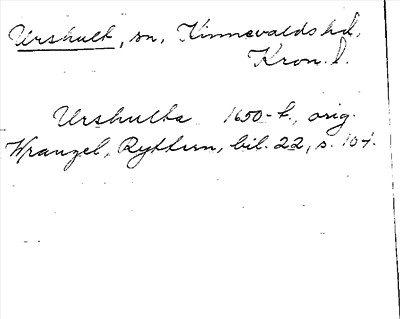 Urshult, sn, Kinnevalds hd,
Kron. l.
Urshulta 1650-t., orig.
Wranzel, Ryttsrn, bil. 22, s.